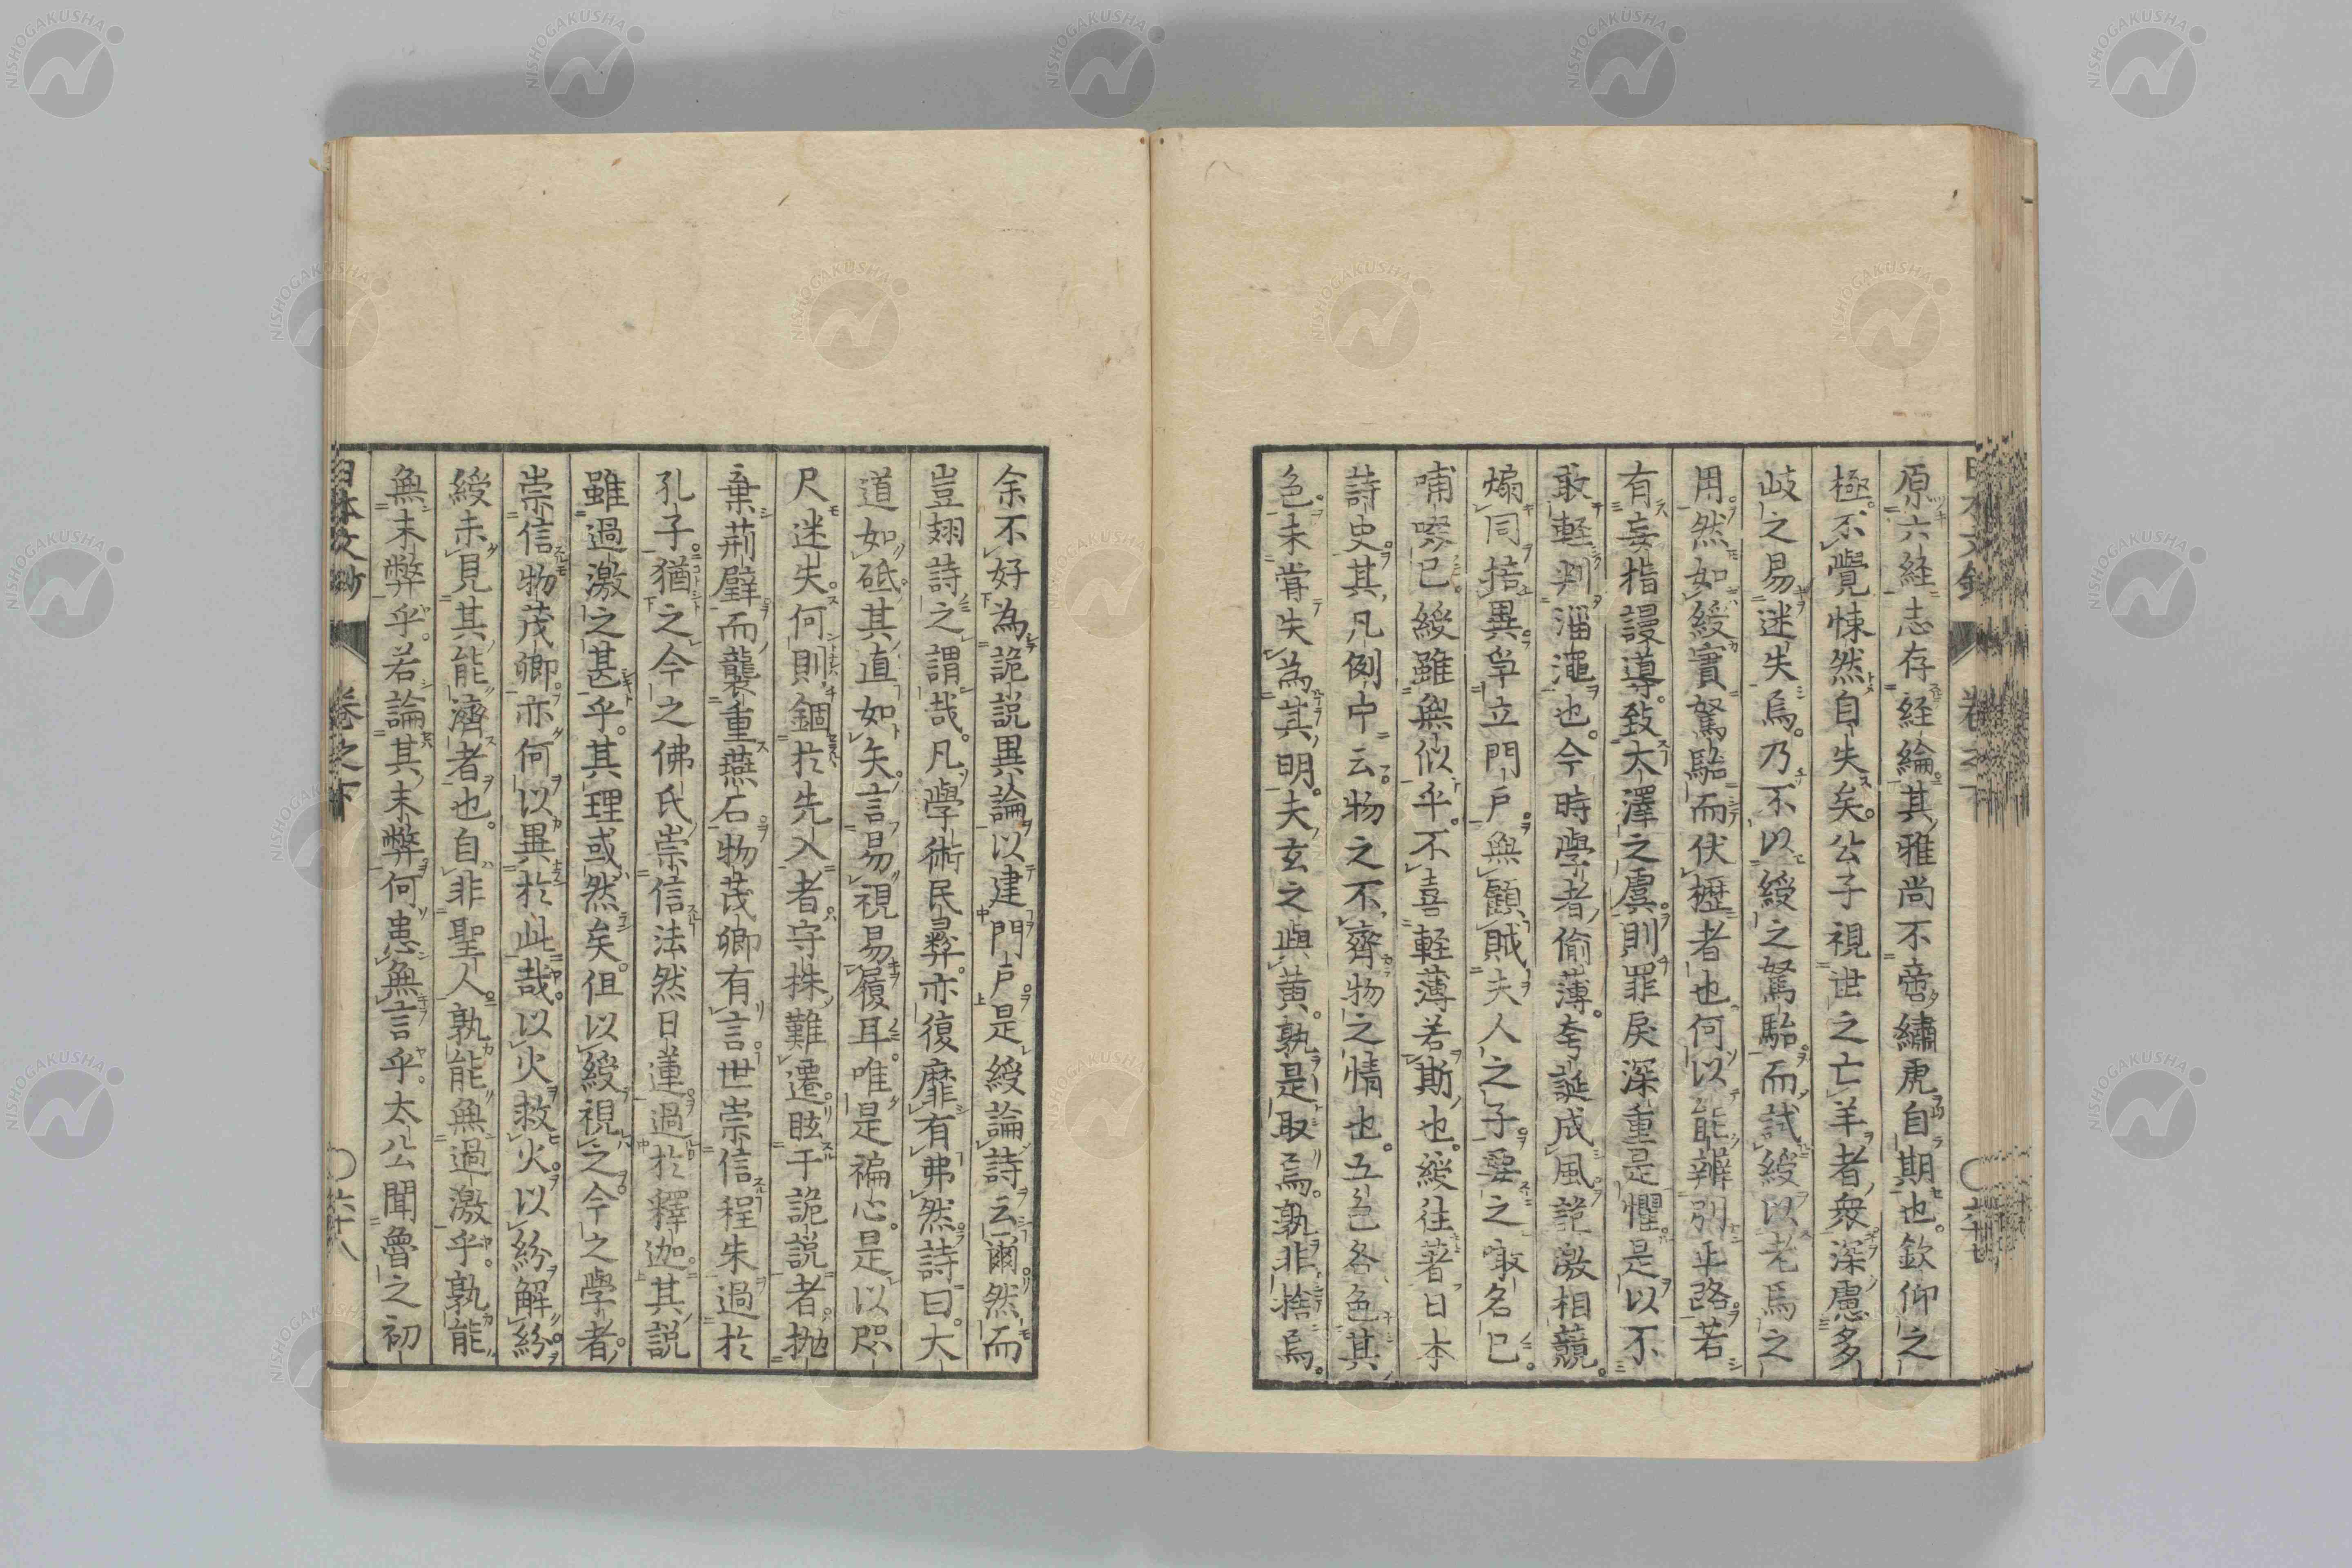 原六経志存経綸其雅尚不啻繡虎自期也。欽仰之
極。不覺悚然自失矣。公子視世之亡羊者衆深慮多
岐之易迷失焉。乃不以綬之駑駘而試綬以老馬之
用。然如綬實駑駘而伏櫪者也。何以能辨別正路。若
有妄指謾導。致大澤之虞。則罪戻深重是懼。是以不
敢軽判淄澠也。今時學者偷薄。夸誕成風詭激相競。
煽同掊異。爭立門戸。無顧賊夫人之子。要之噉名已。
哺啜已。綬雖無似乎。不喜軽薄若斯也。綬往著日本
詩史。其凡例中云。物之不齊物之情也。五色各色其
色。未甞失為其明。夫玄之與黄。孰是取焉。孰非捨焉。
余不好為詭説異論以建門戸。是綬論詩云爾。然而
豈翅詩之謂哉。凡學術民彝。亦復靡有弗然。詩曰。大
道如砥。其直如矢。言易視易履耳。唯是褊心。是以咫
尺迷失。何則錮於先入者。守株難遷。眩于詭説者。抛
棄荊璧而襲重燕石。物茂卿有言。世崇信程朱過於
孔子。猶之今之佛氏崇信法然日蓮。過於釋迦。其説
雖過激之甚乎。其理或然矣。但以綬視之。今之學者。
崇信物茂卿。亦何以異於此哉。以火救火。以紛解紛。
綬未見其能濟者也。自非聖人。孰能無過激乎。孰能
無末弊乎。若論其末弊。何患無言乎。太公聞魯之初
日本文鈔 卷之下 〇六十八
NISHOGAKUSHA